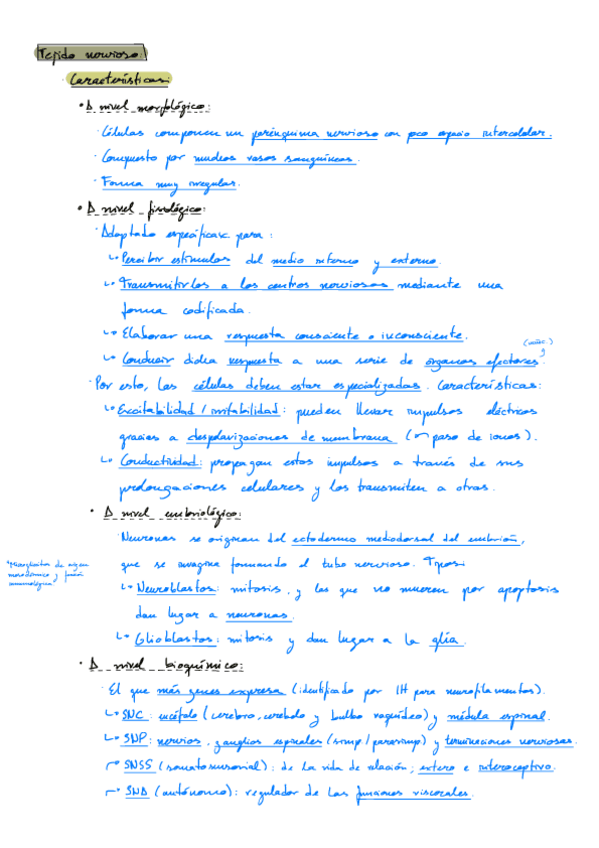 Tejido nervioso:
Características:
• A nivel morfológico:
· Células componen un parénquima nervioso con poco espacio intercelular.
· Compuesto por muchos vasos sanguíneos.
· Forma muy irregular.
• A nivel fisiológico:
· Adaptado específicam. para:
↳ Percibir estímulos del medio interno y externo.
↳ Transmitirlos a los centros nerviosos mediante una
forma codificada.
↳ Elaborar una respuesta consciente o inconsciente.
↳ Conducir dicha respuesta a una serie de órganos efectores.
· Por esto, las células deben estar especializadas. Características:
↳ Excitabilidad / irritabilidad: pueden llevar impulsos eléctricos
gracias a despolarizaciones de membrana ( paso de iones).
↳ Conductividad: propagan estos impulsos a través de sus
prolongaciones celulares y los transmiten a otras.
• A nivel embriológico:
· Neuronas se originan del ectodermo mediodorsal del embrión,
que se invagina formando el tubo nervioso. Tipos:
*Microglocitos de origen
mesodérmico y función
inmunológica
↳ Neuroblastos: mitosis, y las que no mueren por apoptosis
dan lugar a neuronas.
↳ Glioblastos: mitosis y dan lugar a la glía.
• A nivel bioquímico:
· El que más genes expresa (identificado por IH para neurofilamentos).
↳ SNC: encéfalo (cerebro, cerebelo y bulbo raquídeo) y médula espinal.
↳ SNP: nervios, ganglios espinales (simp / parasimp) y terminaciones nerviosas.
SNSS (somatosensorial): de la vida de relación; extero e interoceptivo.
SNA (autónomo): regulador de las funciones viscerales.